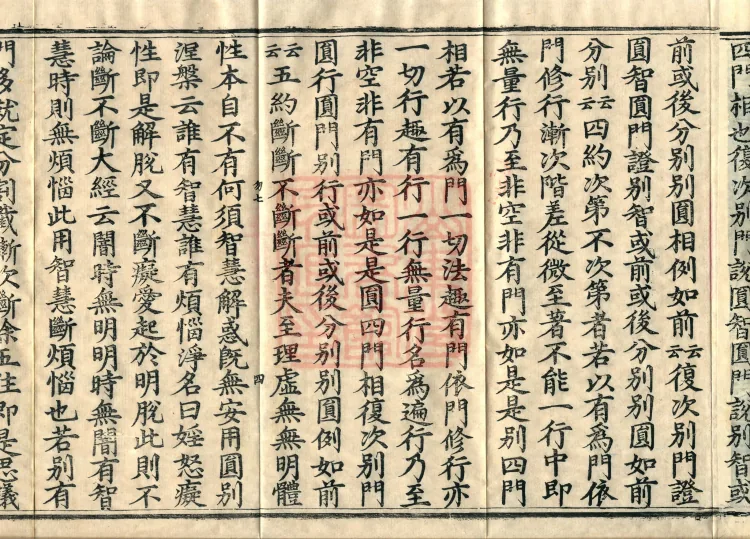 四門相也復次別門說圓智圓門說別智或
前或後分別別圓相例如前云云復次別門證
圓智圓門證別智或前或後分別別圓如前
分別云云四約次第不次第者若以有為門依
門修行漸次階差從微至著不能一行中即
無量行乃至非空非有門亦如是是別四門
相若以有為門一切法趣有門依門修行亦
一切行趣有行一行無量行名為遍行乃至
非空非有門亦如是是圓四門相復次別門
圓行圓門別行或前或後分別別圓例如前
云云五約斷斷不斷斷者夫至理虛無無明體
勿七 四
性本自不有何須智慧解惑旣無安用圓別
涅槃云誰有智慧誰有煩惱淨名曰婬怒癡
性即是解脫又不斷癡愛起於明脫此則不
論斷不斷大經云闇時無明明時無闇有智
慧時則無煩惱此用智慧斷煩惱也若別有
門多就定分割截漸次斷除五住即是思議